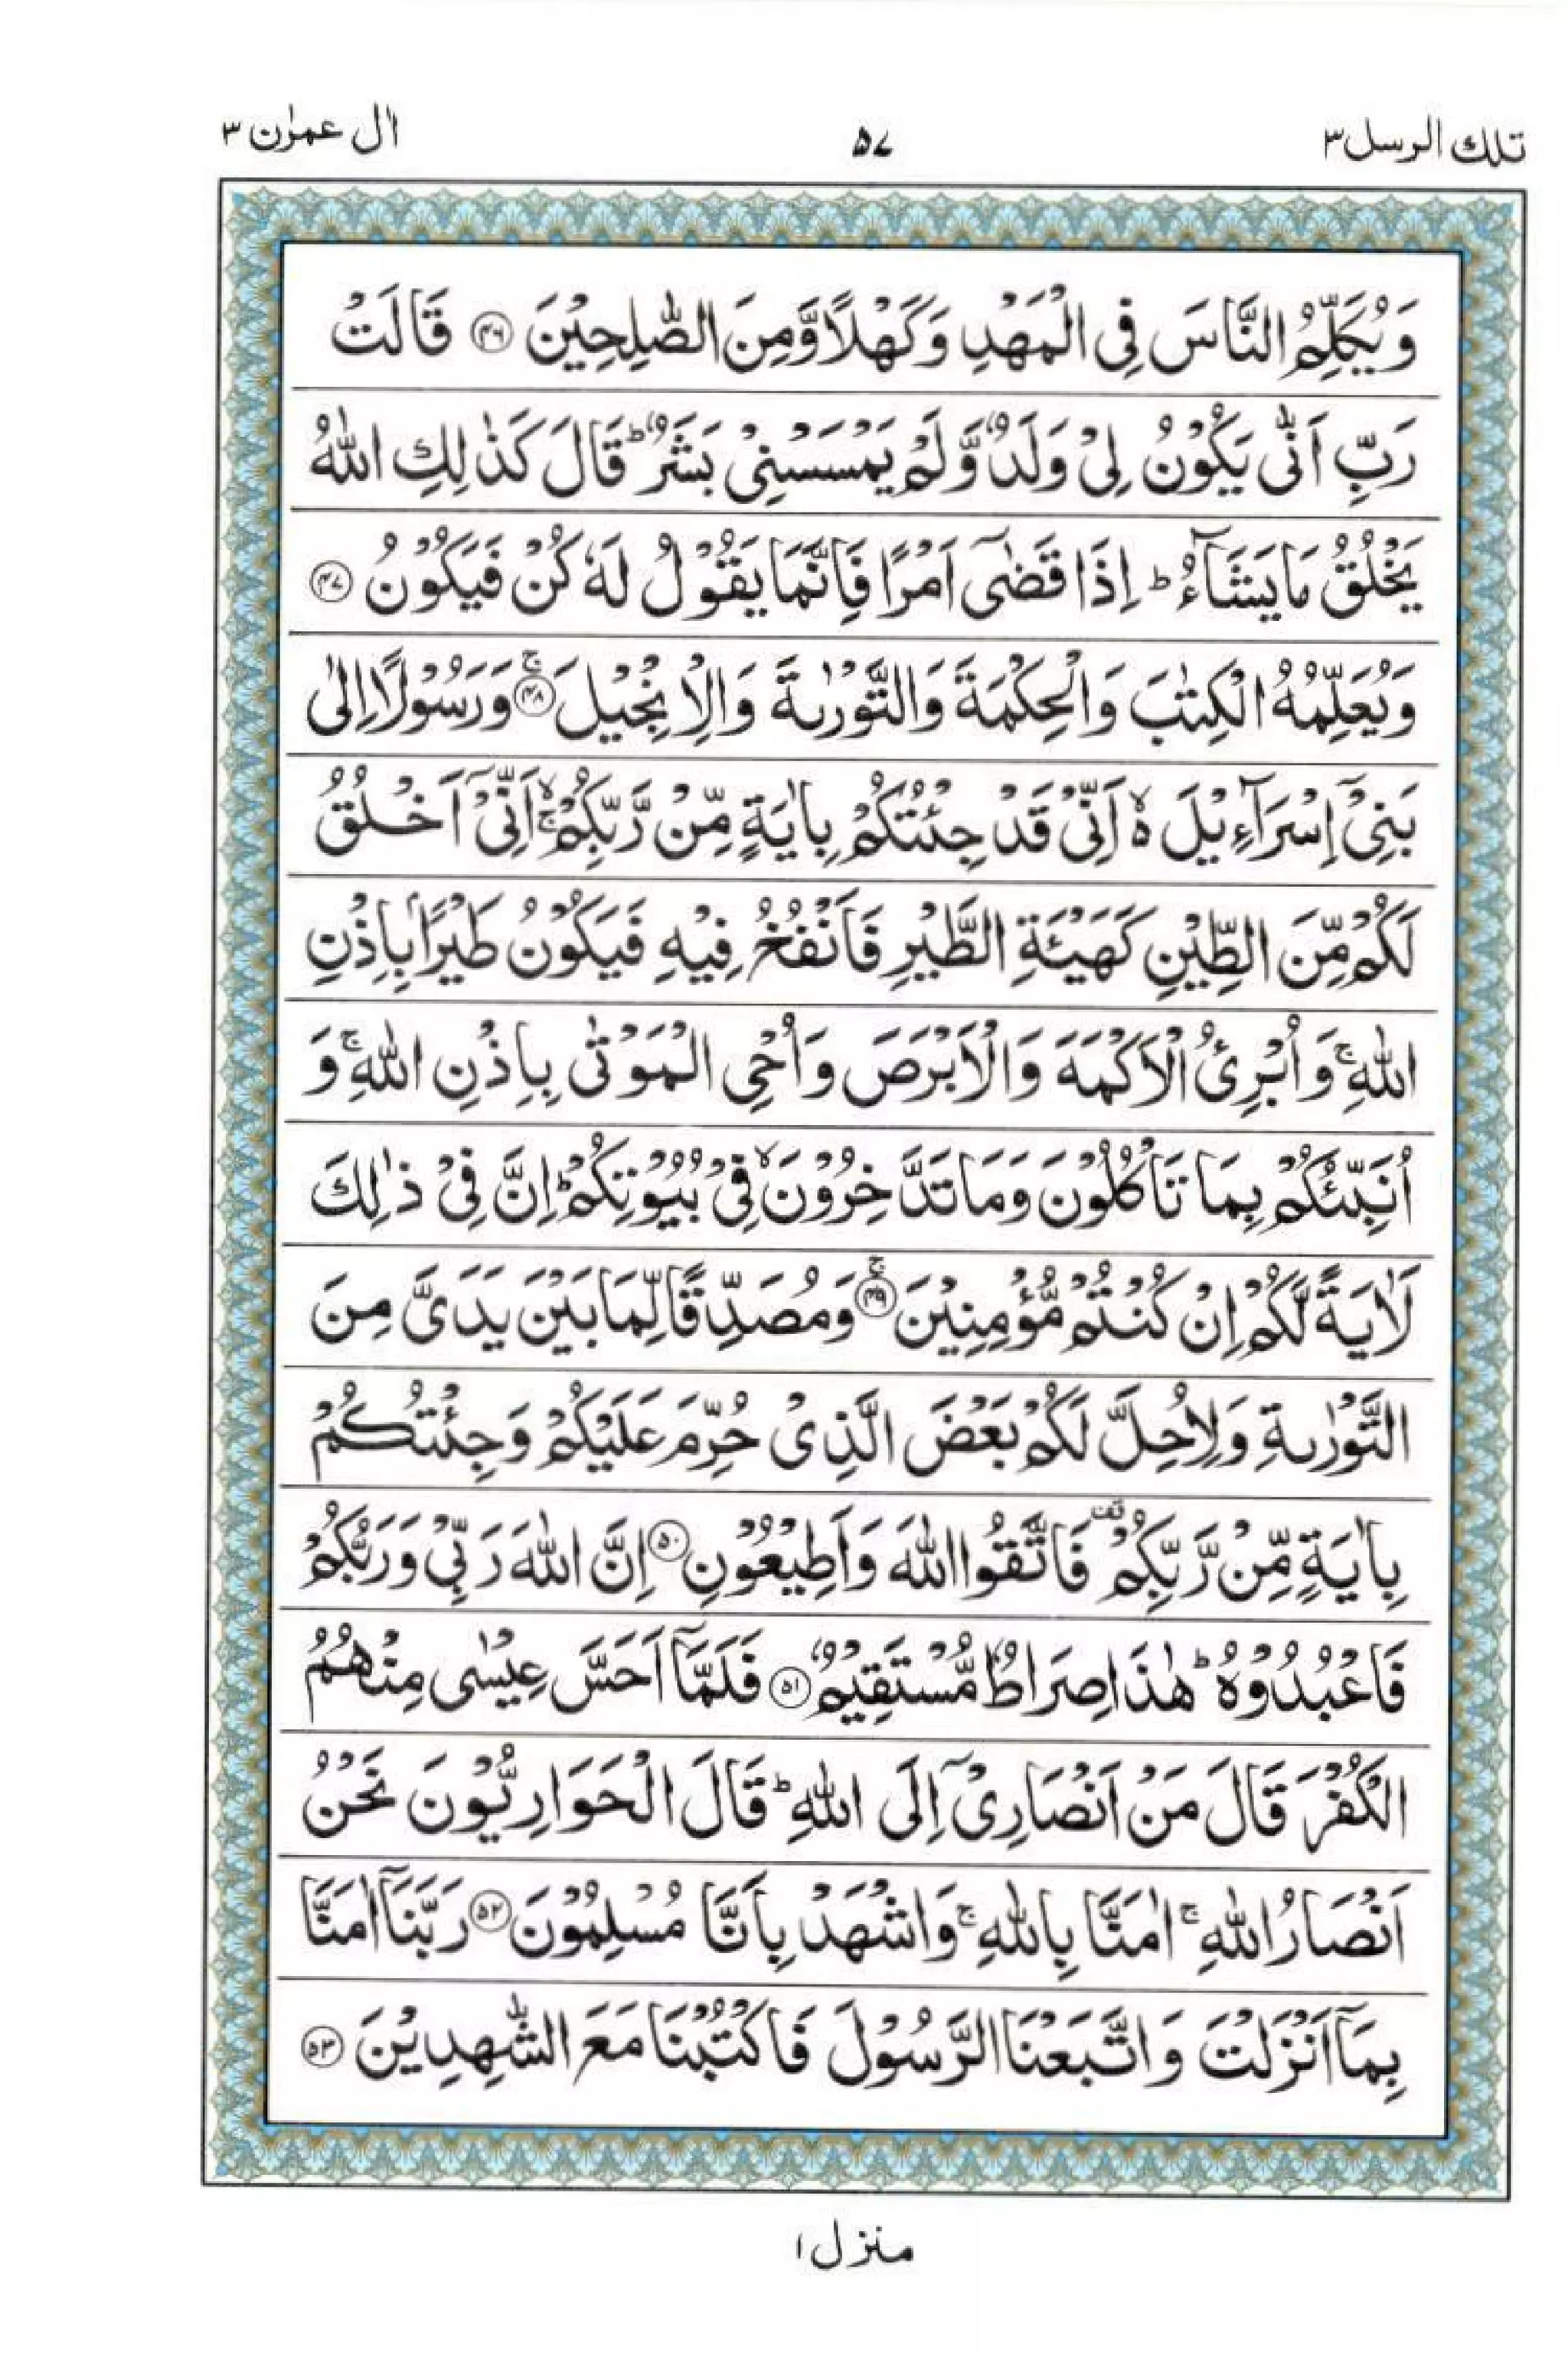 تلك الرسل ٣
٥٧
اٰل عمرٰن ٣
وَيُكَلِّمُ النَّاسَ فِى الْمَهْدِ وَكَهْلًا وَّمِنَ الصّٰلِحِيْنَ ﴿۴۶﴾ قَالَتْ
رَبِّ اَنّٰى يَكُوْنُ لِىْ وَلَدٌ وَّلَمْ يَمْسَسْنِىْ بَشَرٌ ؕ قَالَ كَذٰلِكِ اللّٰهُ
يَخْلُقُ مَا يَشَآءُ ؕ اِذَا قَضٰٓى اَمْرًا فَاِنَّمَا يَقُوْلُ لَهٗ كُنْ فَيَكُوْنُ ﴿۴۷﴾
وَيُعَلِّمُهُ الْكِتٰبَ وَالْحِكْمَةَ وَالتَّوْرٰىةَ وَالْاِنْجِيْلَ ۚ﴿۴۸﴾ وَرَسُوْلًا اِلٰى
بَنِىْٓ اِسْرَآءِيْلَ ۙ اَنِّىْ قَدْ جِئْتُكُمْ بِاٰيَةٍ مِّنْ رَّبِّكُمْ ۙۚ اَنِّىْٓ اَخْلُقُ
لَكُمْ مِّنَ الطِّيْنِ كَهَيْئَةِ الطَّيْرِ فَاَنْفُخُ فِيْهِ فَيَكُوْنُ طَيْرًاۢ بِاِذْنِ
اللّٰهِ ۚ وَاُبْرِئُ الْاَكْمَهَ وَالْاَبْرَصَ وَاُحْىِ الْمَوْتٰى بِاِذْنِ اللّٰهِ ۚ وَ
اُنَبِّئُكُمْ بِمَا تَاْكُلُوْنَ وَمَا تَدَّخِرُوْنَ ۙ فِىْ بُيُوْتِكُمْ ؕ اِنَّ فِىْ ذٰلِكَ
لَاٰيَةً لَّكُمْ اِنْ كُنْتُمْ مُّؤْمِنِيْنَ ۚ﴿۴۹﴾ وَمُصَدِّقًا لِّمَا بَيْنَ يَدَىَّ مِنَ
التَّوْرٰىةِ وَلِاُحِلَّ لَكُمْ بَعْضَ الَّذِىْ حُرِّمَ عَلَيْكُمْ وَجِئْتُكُمْ
بِاٰيَةٍ مِّنْ رَّبِّكُمْ قف فَاتَّقُوا اللّٰهَ وَاَطِيْعُوْنِ ﴿۵۰﴾ اِنَّ اللّٰهَ رَبِّىْ وَرَبُّكُمْ
فَاعْبُدُوْهُ ؕ هٰذَا صِرَاطٌ مُّسْتَقِيْمٌ ﴿۵۱﴾ فَلَمَّآ اَحَسَّ عِيْسٰى مِنْهُمُ
الْكُفْرَ قَالَ مَنْ اَنْصَارِىْٓ اِلَى اللّٰهِ ؕ قَالَ الْحَوَارِيُّوْنَ نَحْنُ
اَنْصَارُ اللّٰهِ ۚ اٰمَنَّا بِاللّٰهِ ۚ وَاشْهَدْ بِاَنَّا مُسْلِمُوْنَ ﴿۵۲﴾ رَبَّنَآ اٰمَنَّا
بِمَآ اَنْزَلْتَ وَاتَّبَعْنَا الرَّسُوْلَ فَاكْتُبْنَا مَعَ الشّٰهِدِيْنَ ﴿۵۳﴾
منزل ١